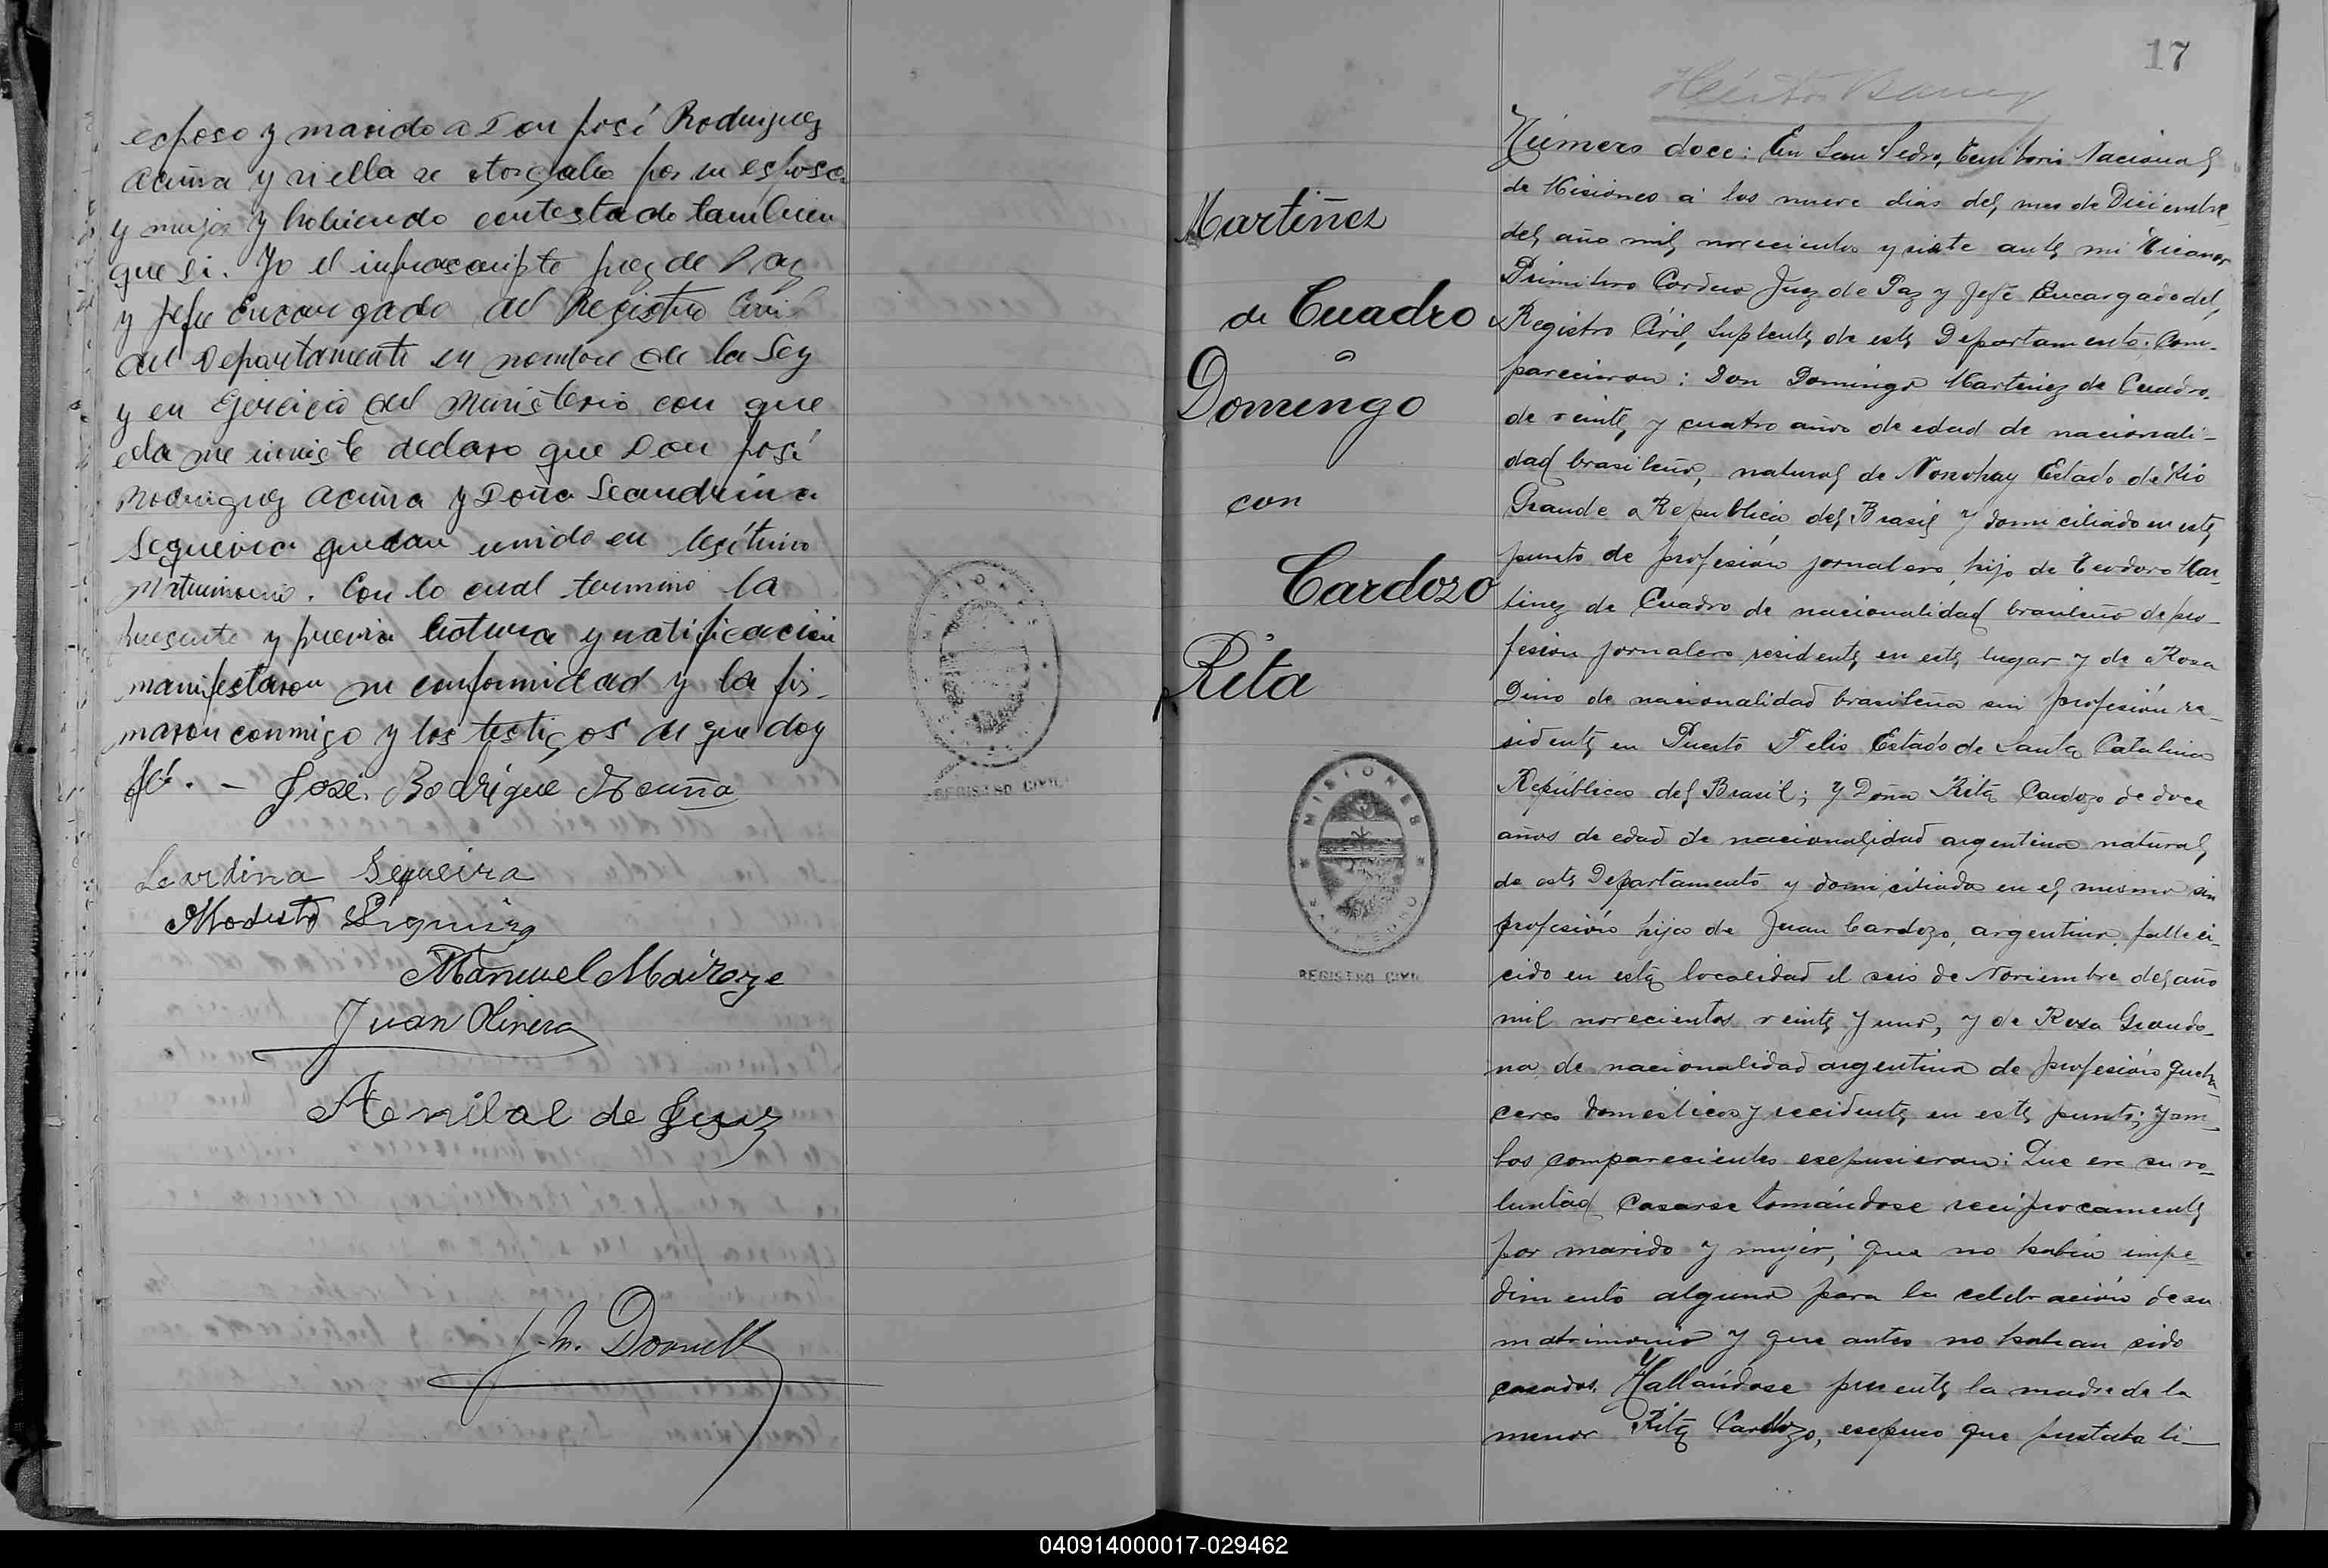 esposo y marido a Don José Rodriguez
Acuña y si ella se otorgaba por su esposa
y mujer y habiendo contestado tambien
que si. Yo el infrascripto Juez de Paz
y Jefe Encargado del Registro Civil
del Departamento en nombre de la Ley
y en Ejercicio del Ministerio con que
ela me inviste declaro que Don José
Rodriguez Acuña y Doña Leandrina
Sequeira quedan unido en lejítimo
Matrimonio. Con lo cual termino la
presente y previa lectura y ratificacion
manifestaron su conformidad y la fir-
maron conmigo y los testigos de que doy
fé. — José Rodrigue Acuña
Leardina Sequeira
Modesto
Manuel
Juan Olivera
de
17
Martiñez
de Cuadro
Domingo
con
Cardozo
Rita
MISIONES
REGISTRO CIVIL
MISIONES
REGISTRO CIVIL
Número doce: En San Pedro, Territorio Nacional
de Misiones á los nueve dias del mes de Diciembre
del año mil novecientos y siete ante mi Nicanor
Primitivo Cordero Juez de Paz y Jefe Encargado del
Registro Civil, Suplente de este Departamento; Com-
parecieron: Don Domingo Martinez de Cuadro.
de veinte y cuatro años de edad de nacionali-
dad brasileño, natural de Nonohay Estado de Rio
Grande Republica del Brasil y domiciliado en este
punto de profesión jornalero, hijo de Teodoro Mar-
tinez de Cuadro de nacionalidad brasileño de pro-
fesion jornalero residente en este lugar y de Rosa
Dino de nacionalidad brasileña sin profesión re-
sidente en Puerto Felis Estado de Santa Catalina
República del Brasil; y Doña Rita Cardozo de doce
años de edad de nacionalidad argentina natural
de este Departamento y domiciliada en el mismo sin
profesión hija de Juan Cardozo, argentino, falle ci-
cido en esta localidad el seis de Noviembre del año
mil novecientos veinte y uno, y de Rosa Grando-
na de nacionalidad argentina de profesión queha
ceres domesticos y recidente en este punto; y am-
bos comparecientes esepusieron: Que era su vo-
luntad casarse tomándose recíprocamente
por marido y mujer; que no habia impe-
dimento alguno para la celebración de su
matrimonio y que antes no habian sido
casados. Hallándose presente la madre de la
menor Rita Cardozo, esepuso que prestaba li-
040914000017-029462